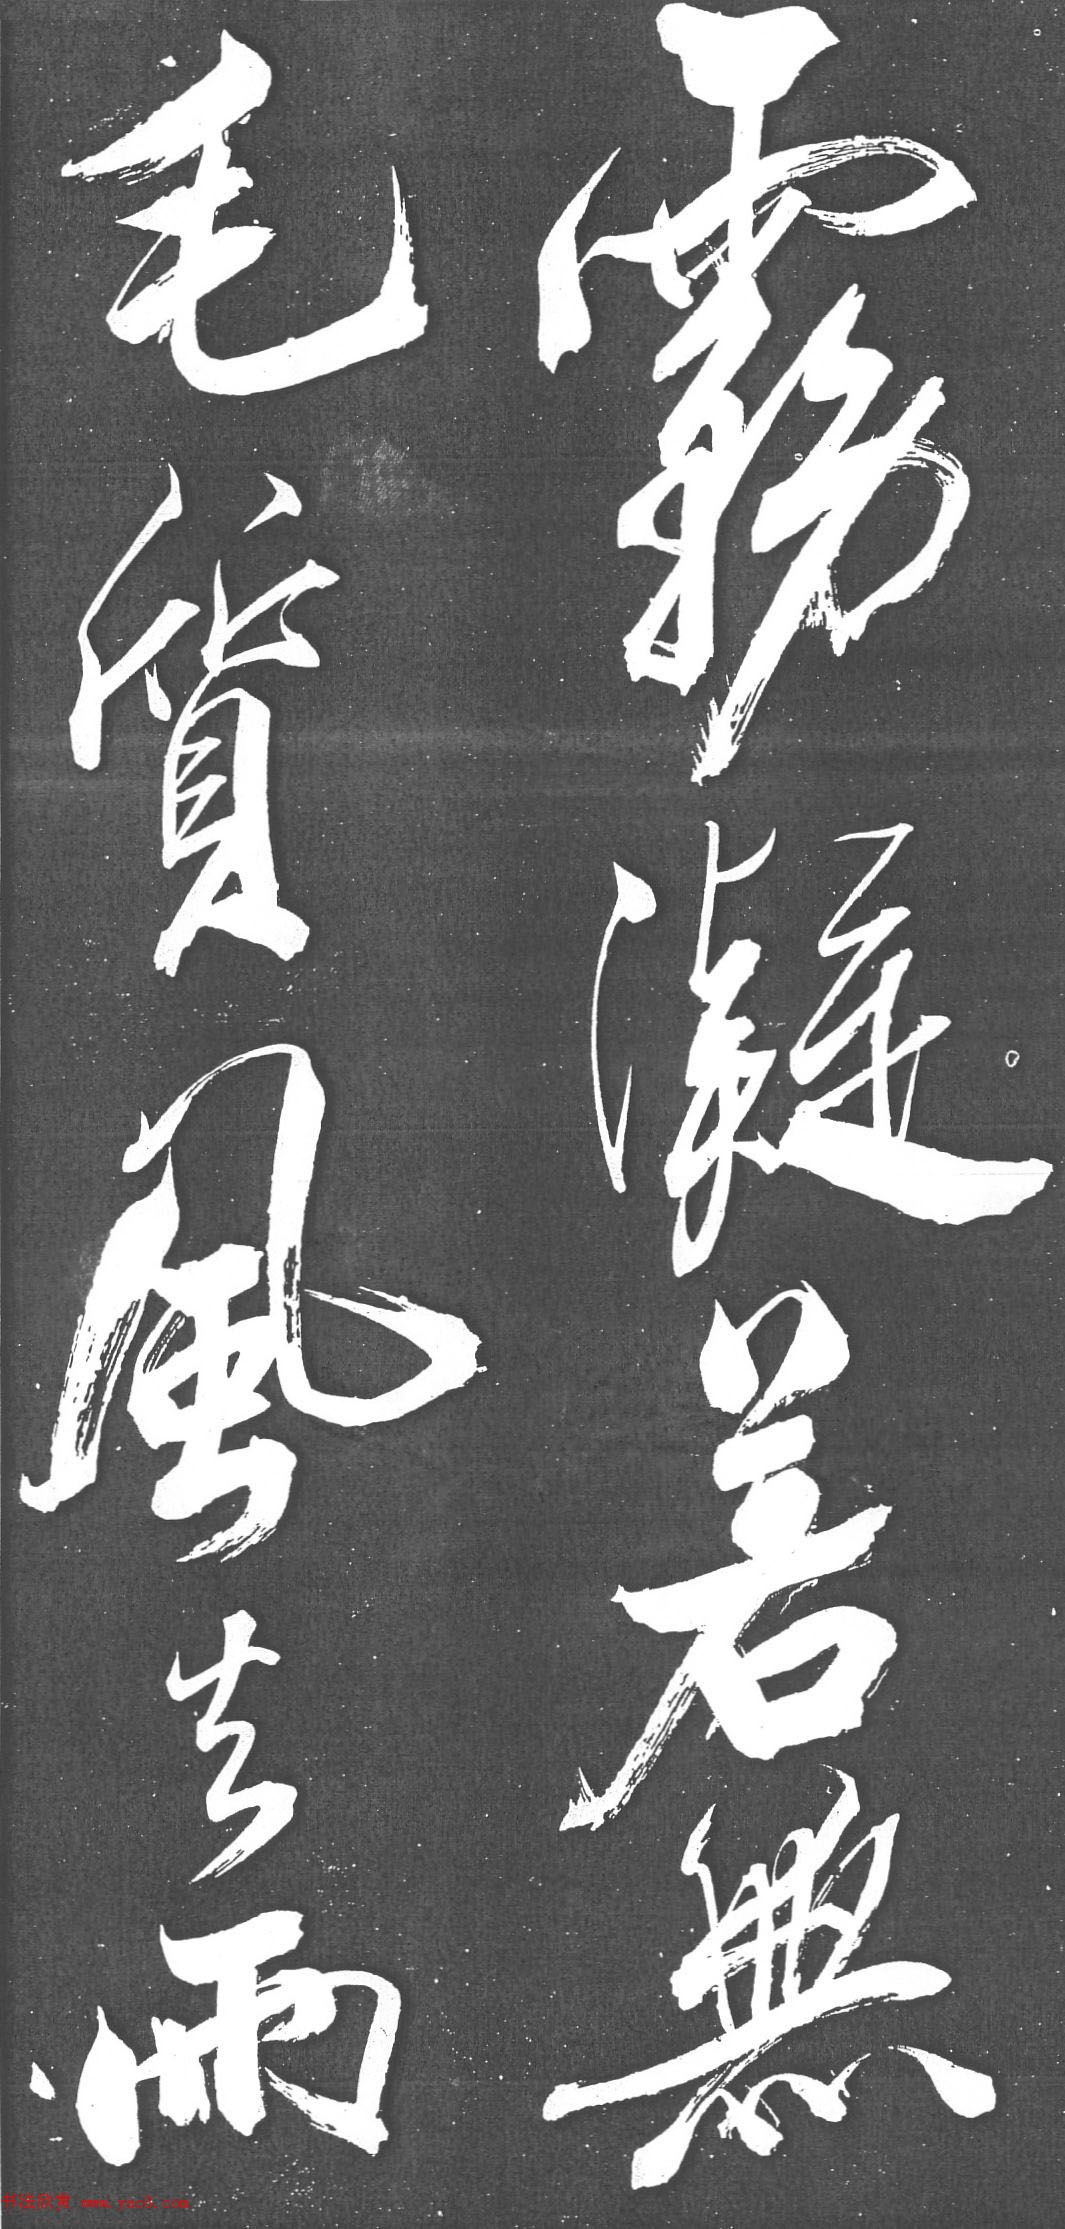 霧凝若無
毛質風去雨
书法欣赏 www.yac8.com